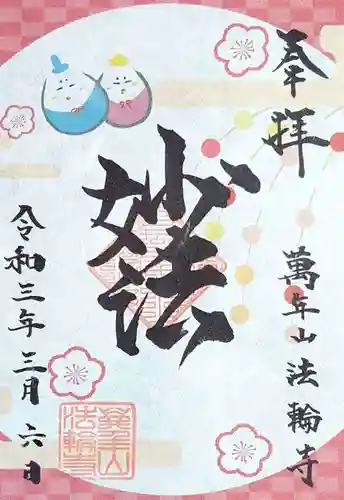 奉拝
萬年山法輪寺
妙法
令和三年三月六日
萬年山
法輪寺